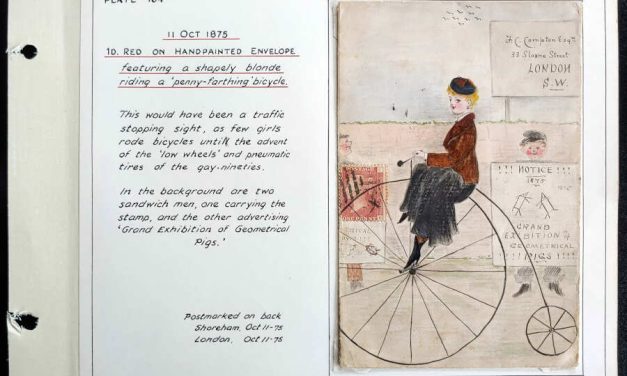 PLATE 164
11 OCT 1875
1D. RED ON HANDPAINTED ENVELOPE
featuring a shapely blonde
riding a 'penny-farthing' bicycle.
This would have been a traffic
stopping sight, as few girls
rode bicycles until the advent
of the 'low wheels' and pneumatic
tires of the gay-nineties.
In the background are two
sandwich men, one carrying the
stamp, and the other advertising
'Grand Exhibition of Geometrical
Pigs.'
Postmarked on back
Shoreham, Oct 11-75
London, Oct 11-75
F. C. Compton Esqre
33 Sloane Street
LONDON
S.W.
!!! NOTICE !!!
1875
GRAND
EXHIBITION of
GEOMETRICAL
!!! PIGS !!!